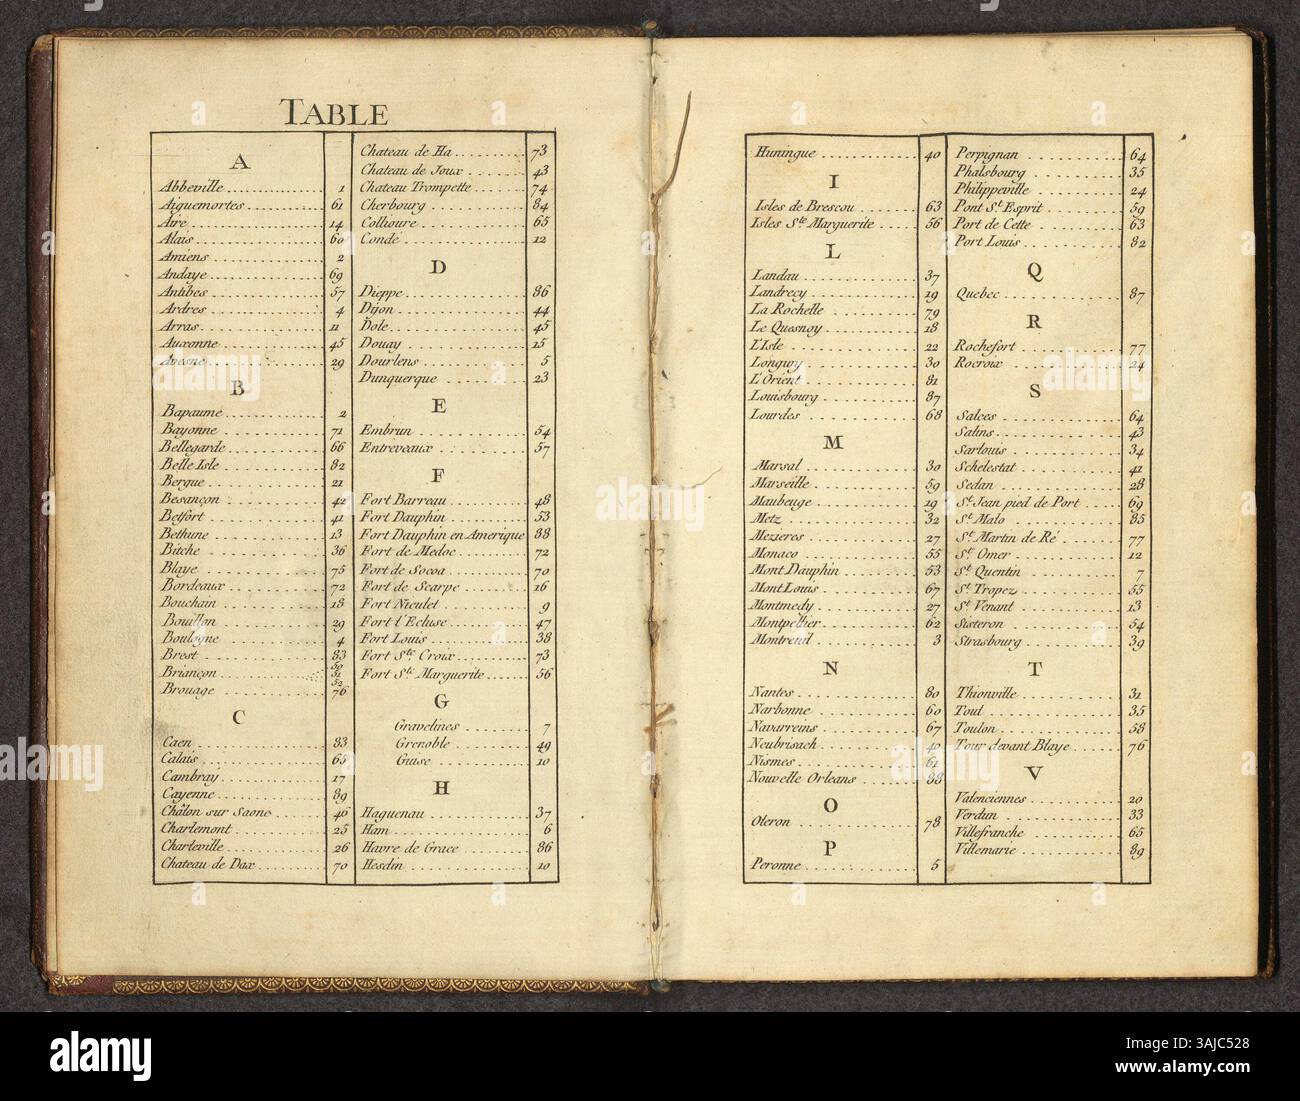 TABLE
A
Abbeville 1
Aiguemortes 61
Aire 14
Alais 60
Amiens 2
Andaye 69
Antibes 57
Ardres 4
Arras 11
Auxonne 45
Avesne 29
B
Bapaume 2
Bayonne 71
Bellegarde 66
Belle Isle 82
Bergue 21
Besançon 42
Betfort 41
Bethune 13
Bitche 36
Blaye 75
Bordeaux 72
Bouchain 18
Bouillon 29
Boulogne 4
Brest 83
Briançon 50 51 52
Brouage 76
C
Caen 83
Calais 65
Cambray 17
Cayenne 89
Châlon sur Saone 46
Charlemont 25
Charleville 26
Chateau de Dax 70
Chateau de Ha 73
Chateau de Joux 43
Chateau Trompette 74
Cherbourg 84
Collioure 65
Condé 12
D
Dieppe 86
Dijon 44
Dole 45
Douay 15
Dourlens 5
Dunquerque 23
E
Embrun 54
Entreveaux 57
F
Fort Barreau 48
Fort Dauphin 53
Fort Dauphin en Amerique 88
Fort de Medoc 72
Fort de Socoa 70
Fort de Scarpe 16
Fort Nieulet 9
Fort l'Ecluse 47
Fort Louis 38
Fort Ste. Croix 73
Fort St. Marguerite 56
G
Gravelines 7
Grenoble 49
Guise 10
H
Haguenau 37
Ham 6
Havre de Grace 86
Hesdin 10
Huningue 40
I
Isles de Brescou 63
Isles Ste. Marguerite 56
L
Landau 37
Landrecy 19
La Rochelle 79
Le Quesnoy 18
L'Isle 22
Longwy 30
L'Orient 81
Louisbourg 87
Lourdes 68
M
Marsal 30
Marseille 59
Maubeuge 19
Metz 32
Mezieres 27
Monaco 55
Mont Dauphin 53
Mont Louis 67
Montmedy 27
Montpellier 62
Montreuil 3
N
Nantes 80
Narbonne 60
Navarreins 67
Neubrisach 40
Nismes 61
Nouvelle Orleans 88
O
Oleron 78
P
Peronne 5
Perpignan 64
Phalsbourg 35
Philippeville 24
Pont St. Esprit 59
Port de Cette 63
Port Louis 82
Q
Quebec 87
R
Rochefort 77
Rocroix 24
S
Salces 64
Salins 43
Sarlouis 34
Schelestat 41
Sedan 28
St. Jean pied de Port 69
St. Malo 85
St. Martin de Ré 77
St. Omer 12
St. Quentin 7
St. Tropez 55
St. Venant 13
Sisteron 54
Strasbourg 39
T
Thionville 31
Toul 35
Toulon 58
Tour devant Blaye 76
V
Valenciennes 20
Verdun 33
Villefranche 65
Villemarie 89
alamy
Image ID: 3AJC528
www.alamy.com